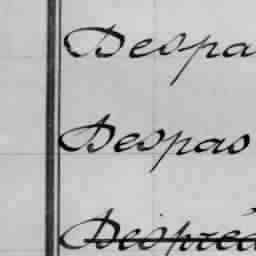 Despa
Despas
Despréa